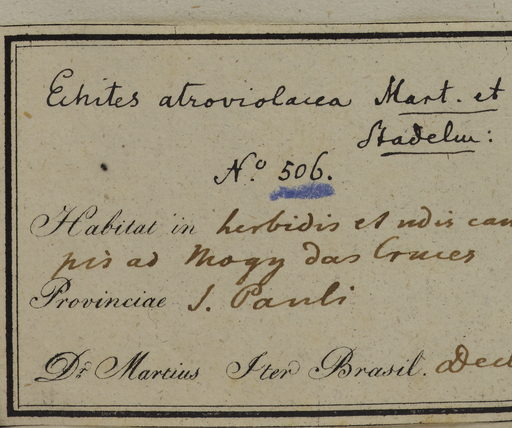 Echites atroviolacea Mart. et
Stadelm:
N.o 506.
Habitat in herbidis et udis cam
pis ad Mogy das Cruces
Provinciae S. Pauli
Dr. Martius Iter Brasil. Dec